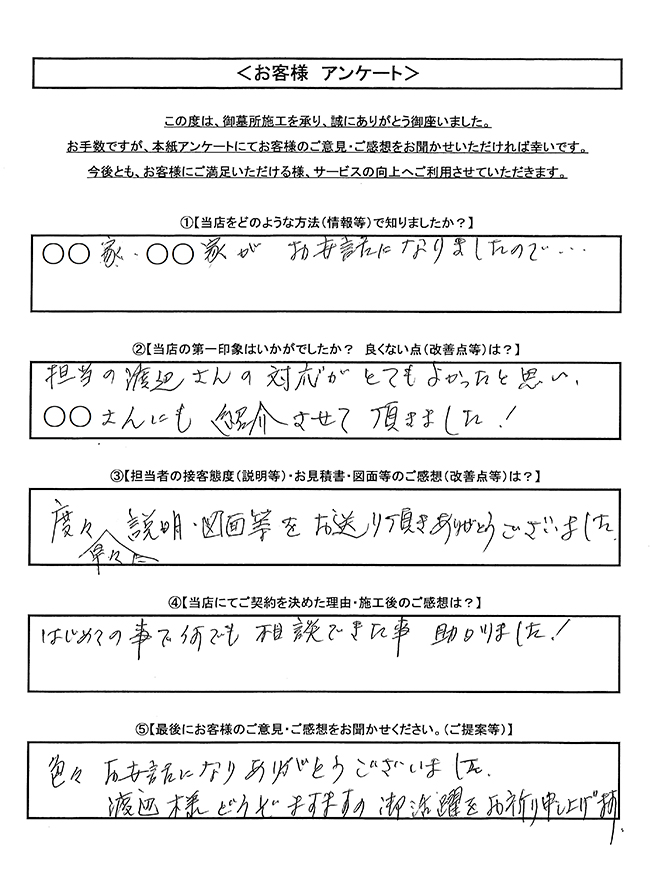 ＜お客様　アンケート＞
この度は、御墓所施工を承り、誠にありがとう御座いました。
お手数ですが、本紙アンケートにてお客様のご意見・ご感想をお聞かせいただければ幸いです。
今後とも、お客様にご満足いただける様、サービスの向上へご利用させていただきます。
①【当店をどのような方法（情報等）で知りましたか？】
〇〇家・〇〇家が　お世話になりましたので・・・
②【当店の第一印象はいかがでしたか？　良くない点（改善点等）は？】
担当の渡辺さんの対応がとてもよかったと思い、
〇〇さんにも紹介させて頂きました！
③【担当者の接客態度（説明等）・お見積書・図面等のご感想（改善点等）は？】
度々　説明・図面等をお送り頂きありがとうございました。
早々に
④【当店にてご契約を決めた理由・施工後のご感想は？】
はじめての事で何でも相談できた事　助かりました！
⑤【最後にお客様のご意見・ご感想をお聞かせください。（ご提案等）】
色々お世話になりありがとうございました。
渡辺様どうぞますますの御活躍をお祈り申し上げます。